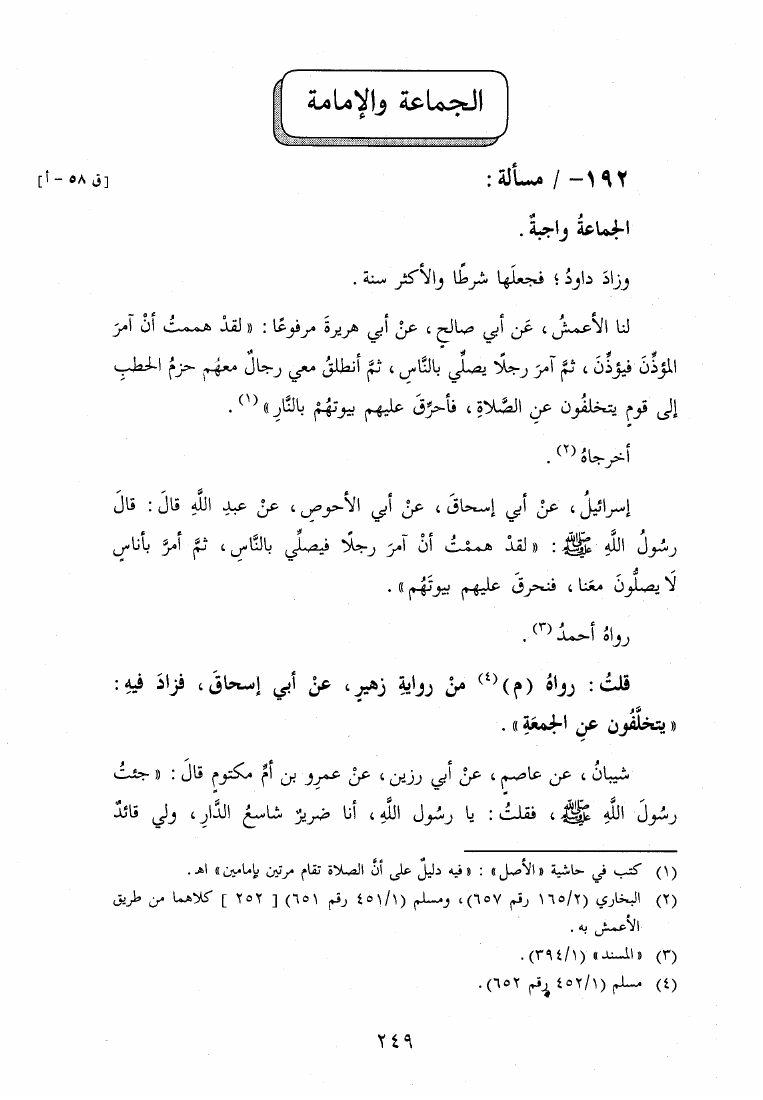 الجماعة والإمامة
١٩٢- / مسألة : [ق ٥٨ - أ]
الجماعةُ واجبةٌ .
وزادَ داودُ ؛ فجعلَها شرطًا والأكثر سنة .
لنا الأعمشُ ، عَن أبي صالحٍ ، عنْ أبي هريرةَ مرفوعًا : « لقدْ هممتُ أنْ آمرَ
المؤذِّنَ فيؤذِّنَ ، ثمَّ آمرَ رجلًا يصلِّي بالنَّاسِ ، ثمَّ أنطلقُ معي رجالٌ معهُم حزمُ الحطبِ
إلى قومٍ يتخلفُون عنِ الصَّلاةِ ، فأحرِّقَ عليهم بيوتهُمْ بالنَّارِ »(١) .
أخرجاهُ(٢) .
إسرائيلُ ، عنْ أبي إسحاقَ ، عنْ أبي الأحوصِ ، عنْ عبدِ اللَّهِ قالَ : قالَ
رسُولُ اللَّهِ ﷺ : « لقدْ هممْتُ أنْ آمرَ رجلًا فيصلِّي بالنَّاسِ ، ثمَّ أمرَّ بأناسٍ
لَا يصلُّونَ معَنا ، فنحرقَ عليهم بيوتَهُم » .
رواهُ أحمدُ(٣) .
قلتُ : رواهُ (م)(٤) منْ روايةِ زهيرٍ ، عنْ أبي إسحاقَ ، فزادَ فيهِ :
« يتخلَّفُون عنِ الجمعَةِ » .
شيبانُ ، عن عاصمٍ ، عنْ أبي رزين ، عنْ عمرِو بن أمِّ مكتومٍ قالَ : « جئتُ
رسُولَ اللَّهِ ﷺ ، فقلتُ : يا رسُول اللَّهِ ، أنا ضريرٌ شاسعُ الدَّارِ ، ولي قائدٌ
(١) كتب في حاشية « الأصل » : « فيه دليلٌ على أنَّ الصلاة تقام مرتين بإمامين » اهـ .
(٢) البخاري (١٦٥/٢ رقم ٦٥٧) ، ومسلم (٤٥١/١ رقم ٦٥١) [ ٢٥٢ ] كلاهما من طريق
الأعمش به .
(٣) « المسند » (٣٩٤/١) .
(٤) مسلم (٤٥٢/١ رقم ٦٥٢) .
٢٤٩